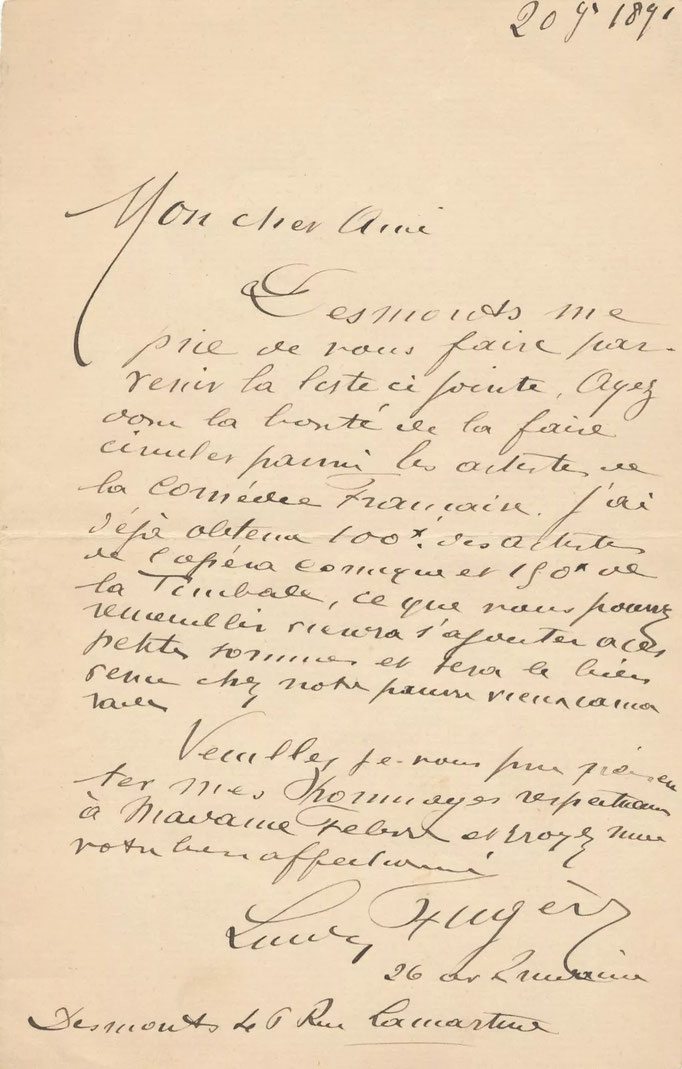 20 9r 1891
Mon cher Ami
Desmonts me
prie de vous faire par-
venir la liste ci jointe, Ayez
donc la bonté de la faire
circuler parmi les artistes de
la Comédie Française. J'ai
déjà obtenu 100f. des artistes
de l'opéra Comique et 150f de
la Timbale, ce que vous pourrez
recueillir viendra s'ajouter à ces
petites sommes et sera le bien
venu chez notre pauvre vieux cama
rade
Veuillez je vous prie présen
ter mes hommages respectueux
à Madame Febvre et croyez moi
votre bien affectionné
Fugère
26
Desmonts 46 Rue Lamartine